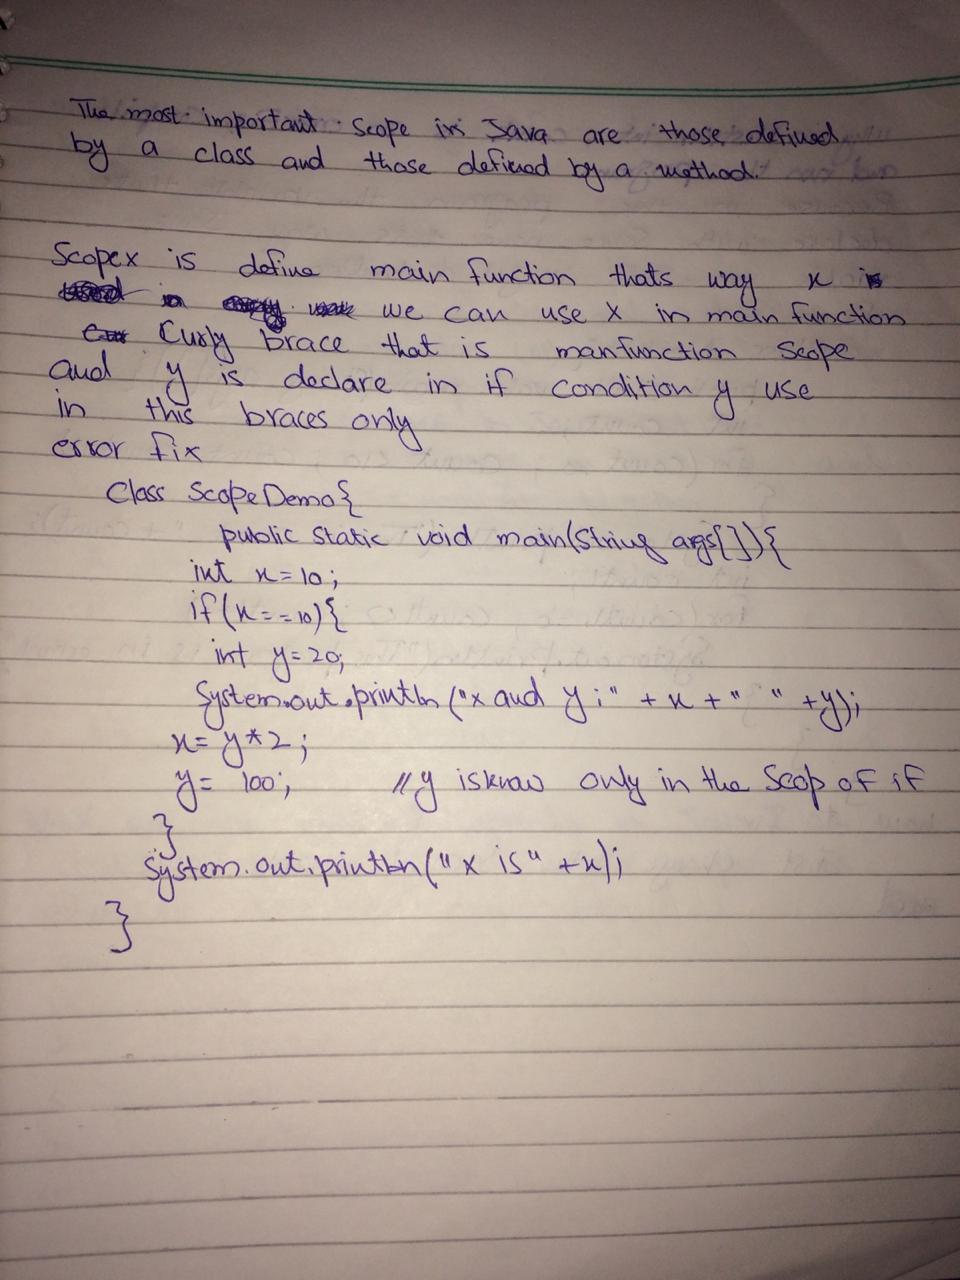 The most important Scope in Java are those defined
by a class and those defined by a method.
Scopex is define main function thats way x is
we can use x in main function
Curly brace that is manfunction Scope
and y is declare in if condition y use
in this braces only
error fix
Class ScopeDemo{
public static void main(String args[]){
int x=10;
if(x==10){
int y=20;
System.out.println("x and y:" + x + " " +y);
x= y*2;
y= 100; //y isknow only in the Scop of if
}
System.out.println("x is" +x);
}